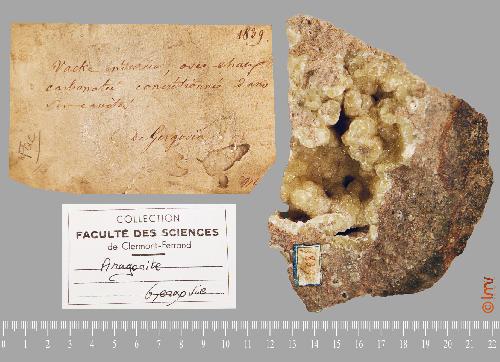 1839.
Vacke endurcie, avec chaux
carbonatée concrétionnée dans
ses cavités
de Gergovia
COLLECTION
FACULTÉ DES SCIENCES
de Clermont-Ferrand
Aragonite
Gergovie
© lmv
0 1 2 3 4 5 6 7 8 9 10 11 12 13 14 15 16 17 18 19 20 21 22